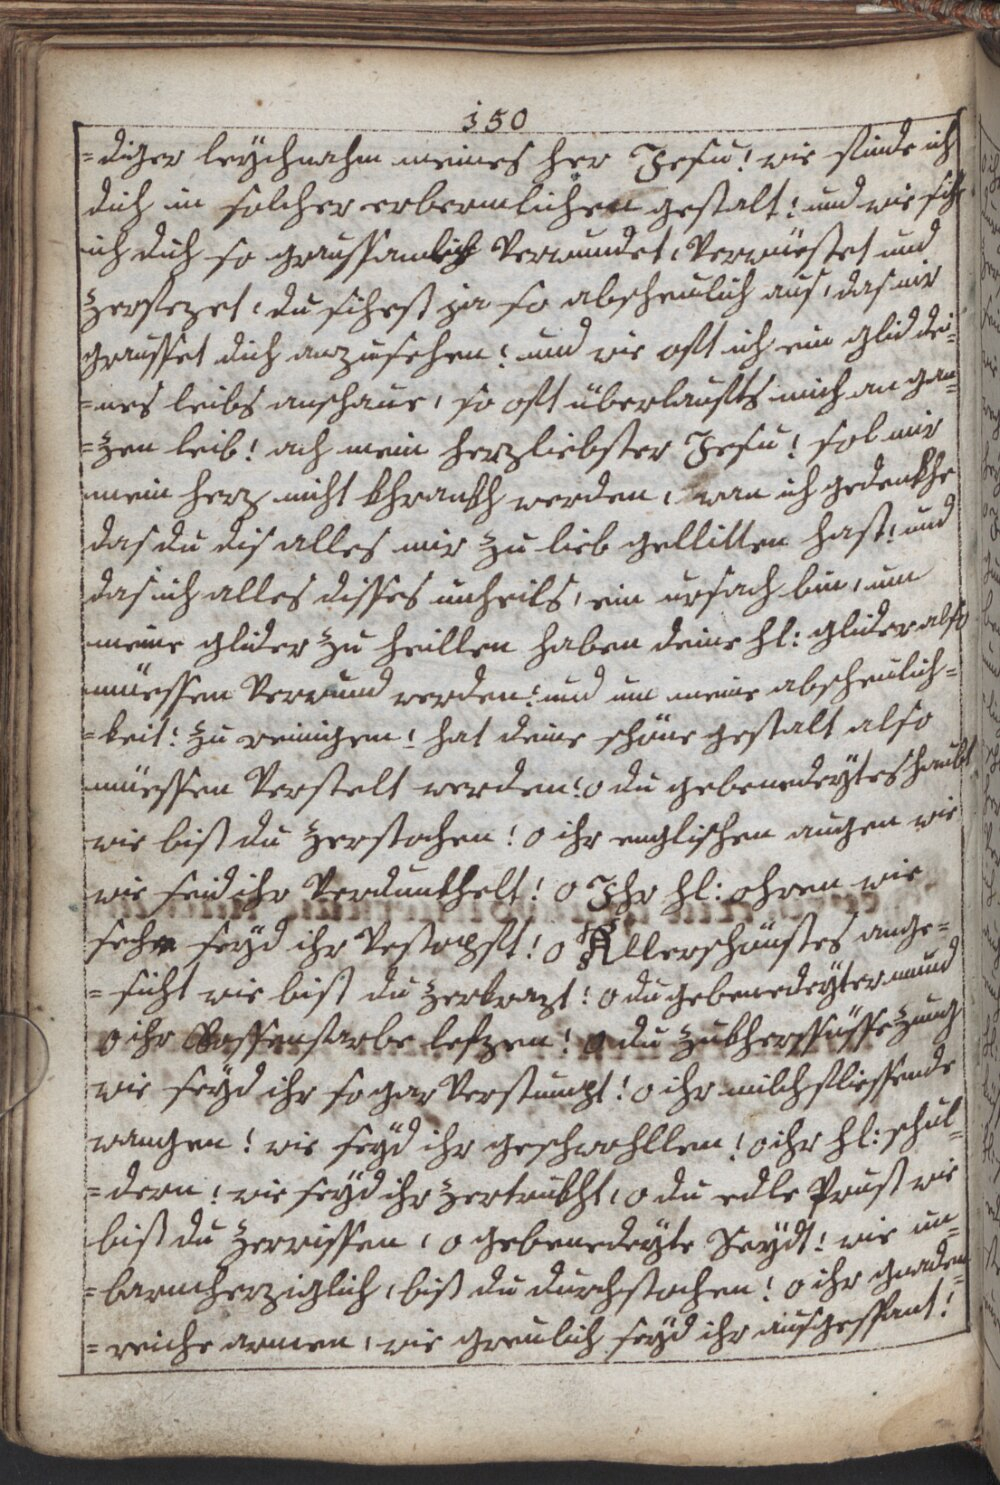 350
=diger leÿchnahm meines her Jesu! wie finde ich
dich in solcher erbermlichen gestalt! und wie sihe
ich dich so graussamlich Verwundet, Verwüestet und
zersezet, du sihest ja so abscheulich aus, das mir
grausset dich anzusehen! und wie oft ich ein glid dei=
=nes leibs anschaue, so oft überlaufts mich an gan=
=zen leib! ach mein herzliebster Jesu! sol mir
mein herz nicht khrankh werden, wan ich gedenkhe
das du dis alles mir zu lieb gellitten hast! und
das ich alles disses unheils, ein ursach bin, um
meine glider zu heillen haben deine hl: glider also
müessen Verwund werden! und um meine abscheulich=
=keit! zu reinigen! hat deine schöne gestalt also
müessen Verstelt werden! o du gebenedeÿtes haubt
wie bist du zerstochen! o ihr englischen augen wie
wie seid ihr Verdunkhelt! o Ihr hl: ohren wie
sehr seÿd ihr Vestopft! o Allerschönstes ange=
=sicht wie bist du zerkrazt! o du gebenedeÿter mund
o ihr Rossenfarbe lefzen! o du zukherssüsse zung
wie seÿd ihr so gar Verstumpt! o ihr milchfliessende
wangen! wie seÿd ihr geschwohllen! o ihr hl: schul=
=dern! wie seÿd ihr zertrukht, o du edle Prust wie
bist du zerrissen, o gebenedeÿte Seÿdt! wie un=
=barmherziglich, bist du durchstochen! o ihr gnaden=
=reiche armen, wie greulich seÿd ihr ausgespant!